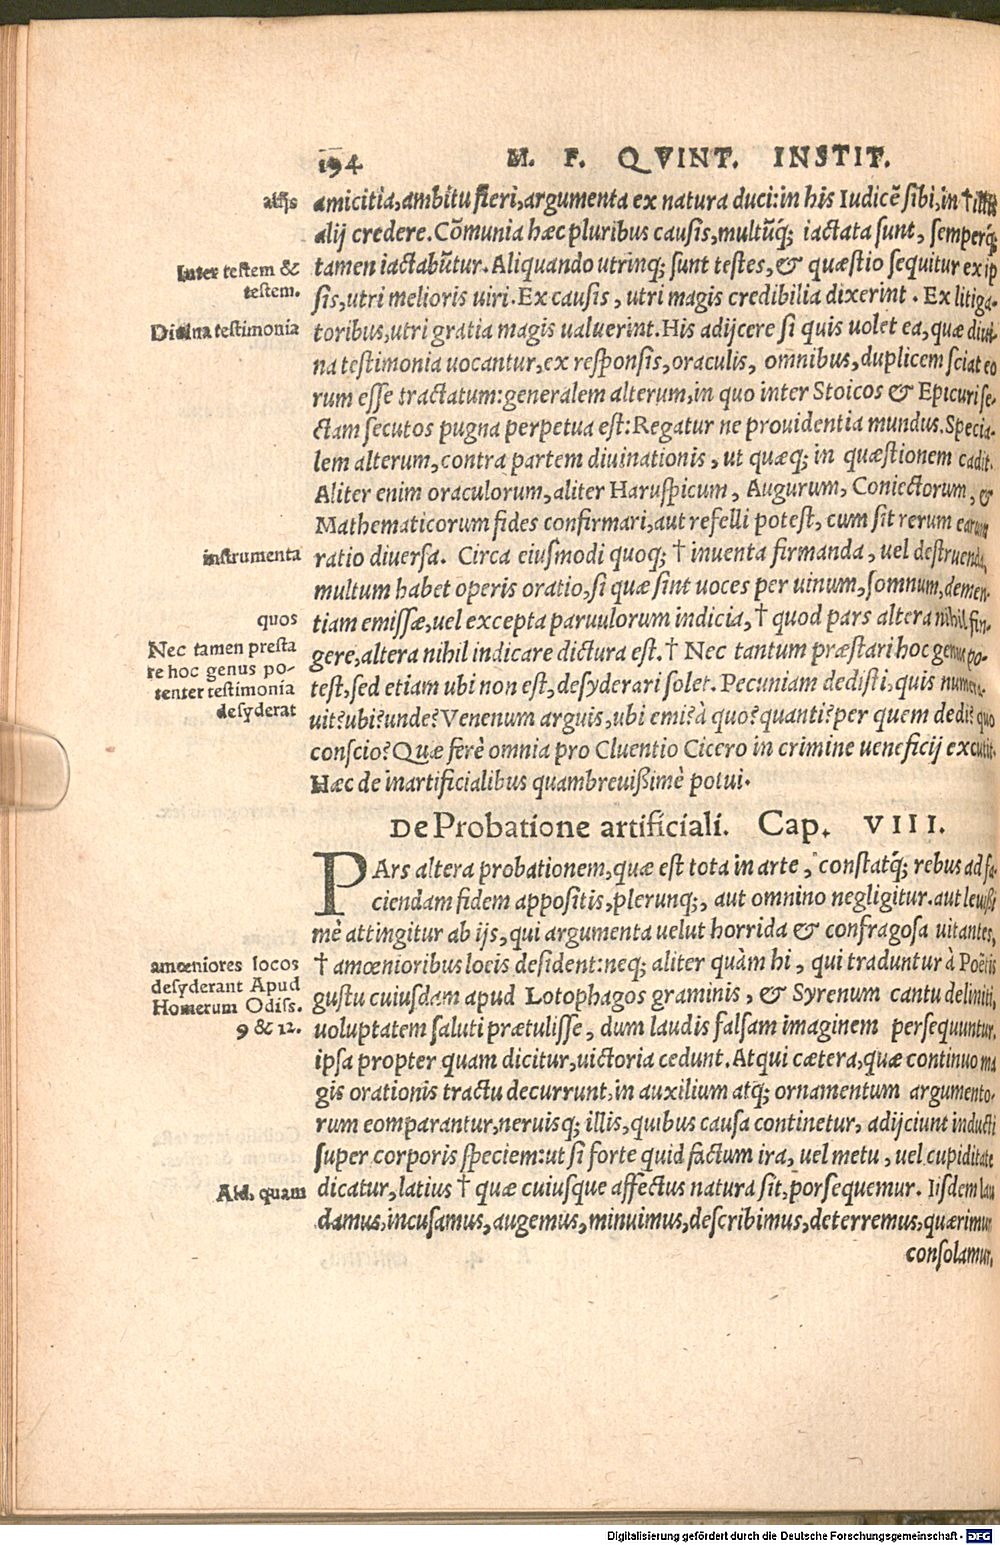 194 M. F. QVINT. INSTIT.
alijs
amicitia, ambitu fieri, argumenta ex natura duci: in his Iudicẽ sibi, in † illis
alij credere. Cõmunia hæc pluribus causis, multũq́; iactata sunt, semperq́;
Inter testem &
testem.
tamen iactabũtur. Aliquando utrinq; sunt testes, & quæstio sequitur ex ip
sis, utri melioris uiri. Ex causis, utri magis credibilia dixerint. Ex litiga-
Diuina testimonia
toribus, utri gratia magis ualuerint. His adijcere si quis uolet ea, quæ diui-
na testimonia uocantur, ex responsis, oraculis, omnibus, duplicem sciat eo
rum esse tractatum: generalem alterum, in quo inter Stoicos & Epicuri se-
ctam secutos pugna perpetua est: Regatur ne prouidentia mundus. Specia-
lem alterum, contra partem diuinationis, ut quæq; in quæstionem cadit.
Aliter enim oraculorum, aliter Haruspicum, Augurum, Coniectorum, &
Mathematicorum fides confirmari, aut refelli potest, cum sit rerum earum
instrumenta
ratio diuersa. Circa eiusmodi quoq; † inuenta firmanda, uel destruenda,
multum habet operis oratio, si quæ sint uoces per uinum, somnum, demen-
quos
tiam emissæ, uel excepta paruulorum indicia, † quod pars altera nihil fin-
Nec tamen presta
re hoc genus po-
tenter testimonia
desyderat
gere, altera nihil indicare dictura est. † Nec tantum præstari hoc genus po-
test, sed etiam ubi non est, desyderari solet. Pecuniam dedisti, quis numera-
uit? ubi? unde? Venenum arguis, ubi emi? à quo? quanti? per quem dedi? quo
conscio? Quæ ferè omnia pro Cluentio Cicero in crimine ueneficij excutit.
Hæc de inartificialibus quambreuißimè potui.
De Probatione artificiali. Cap. VIII.
PArs altera probationem, quæ est tota in arte, constatq́; rebus ad fa-
ciendam fidem appositis, plerunq;, aut omnino negligitur. aut leuißi
mè attingitur ab ijs, qui argumenta uelut horrida & confragosa uitantes,
amœniores locos
desyderant Apud
Homerum Odiss.
9 & 12.
† amœnioribus locis desident: neq; aliter quàm hi, qui traduntur à Poëtis
gustu cuiusdam apud Lotophagos graminis, & Syrenum cantu deliniti,
uoluptatem saluti prætulisse, dum laudis falsam imaginem persequuntur.
ipsa propter quam dicitur, uictoria cedunt. Atqui cætera, quæ continuo ma
gis orationis tractu decurrunt, in auxilium atq́; ornamentum argumento-
rum eomparantur, neruisq; illis, quibus causa continetur, adijciunt inducti
super corporis speciem: ut si forte quid factum ira, uel metu, uel cupiditate
Ald. quam
dicatur, latius † quæ cuiusque affectus natura sit, porsequemur. Iisdem lau
damus, incusamus, augemus, minuimus, describimus, deterremus, quærimur
consolamur,
Digitalisierung gefördert durch die Deutsche Forschungsgemeinschaft - DFG